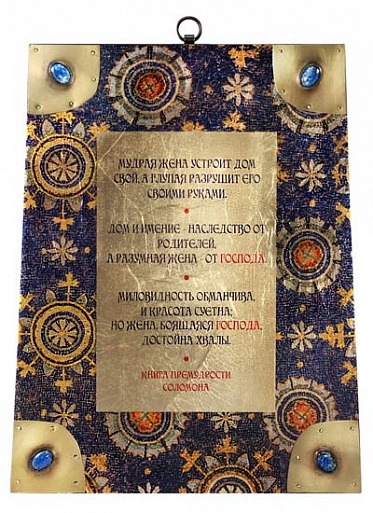 МУДРАЯ ЖЕНА УСТРОИТ ДОМ
СВОЙ, А ГЛУПАЯ РАЗРУШИТ ЕГО
СВОИМИ РУКАМИ.
ДОМ И ИМЕНИЕ - НАСЛЕДСТВО ОТ
РОДИТЕЛЕЙ,
А РАЗУМНАЯ ЖЕНА - ОТ ГОСПОДА.
МИЛОВИДНОСТЬ ОБМАНЧИВА,
И КРАСОТА СУЕТНА;
НО ЖЕНА, БОЯЩАЯСЯ ГОСПОДА,
ДОСТОЙНА ХВАЛЫ.
КНИГА ПРЕМУДРОСТИ
СОЛОМОНА